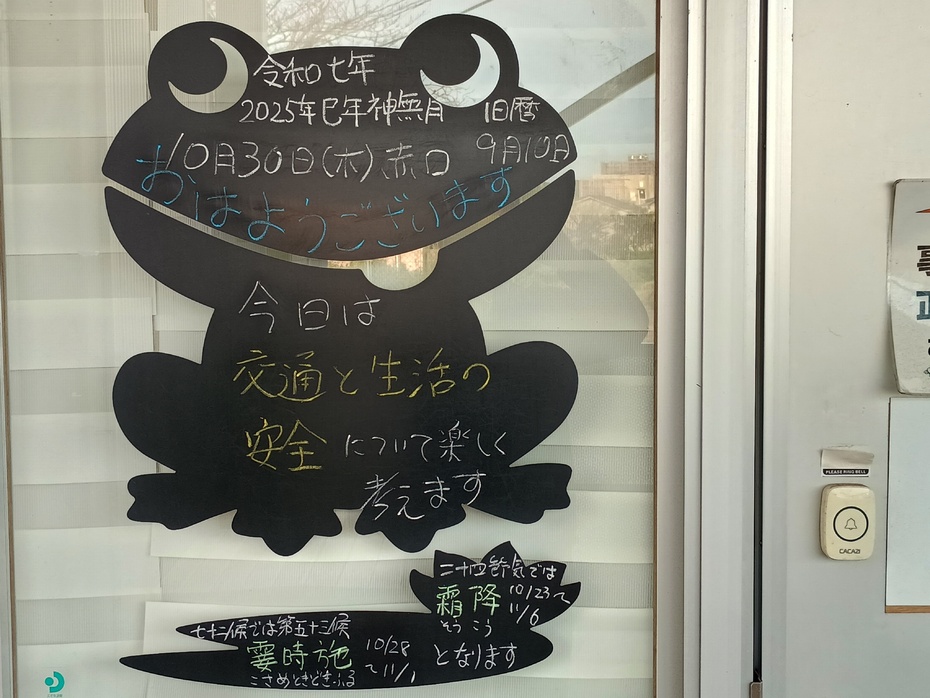 令和七年
2025年巳年神無月 旧暦
10月30日(木)赤口 9月10日
おはようございます
今日は
交通と生活の
安全について楽しく
考えます
二十四節気では
霜降 10/23〜11/6
そうこう
となります
七十二候では第五十三候
霎時施 10/28〜11/1
こさめときどきふる
PLEASE RING BELL
CACAZI